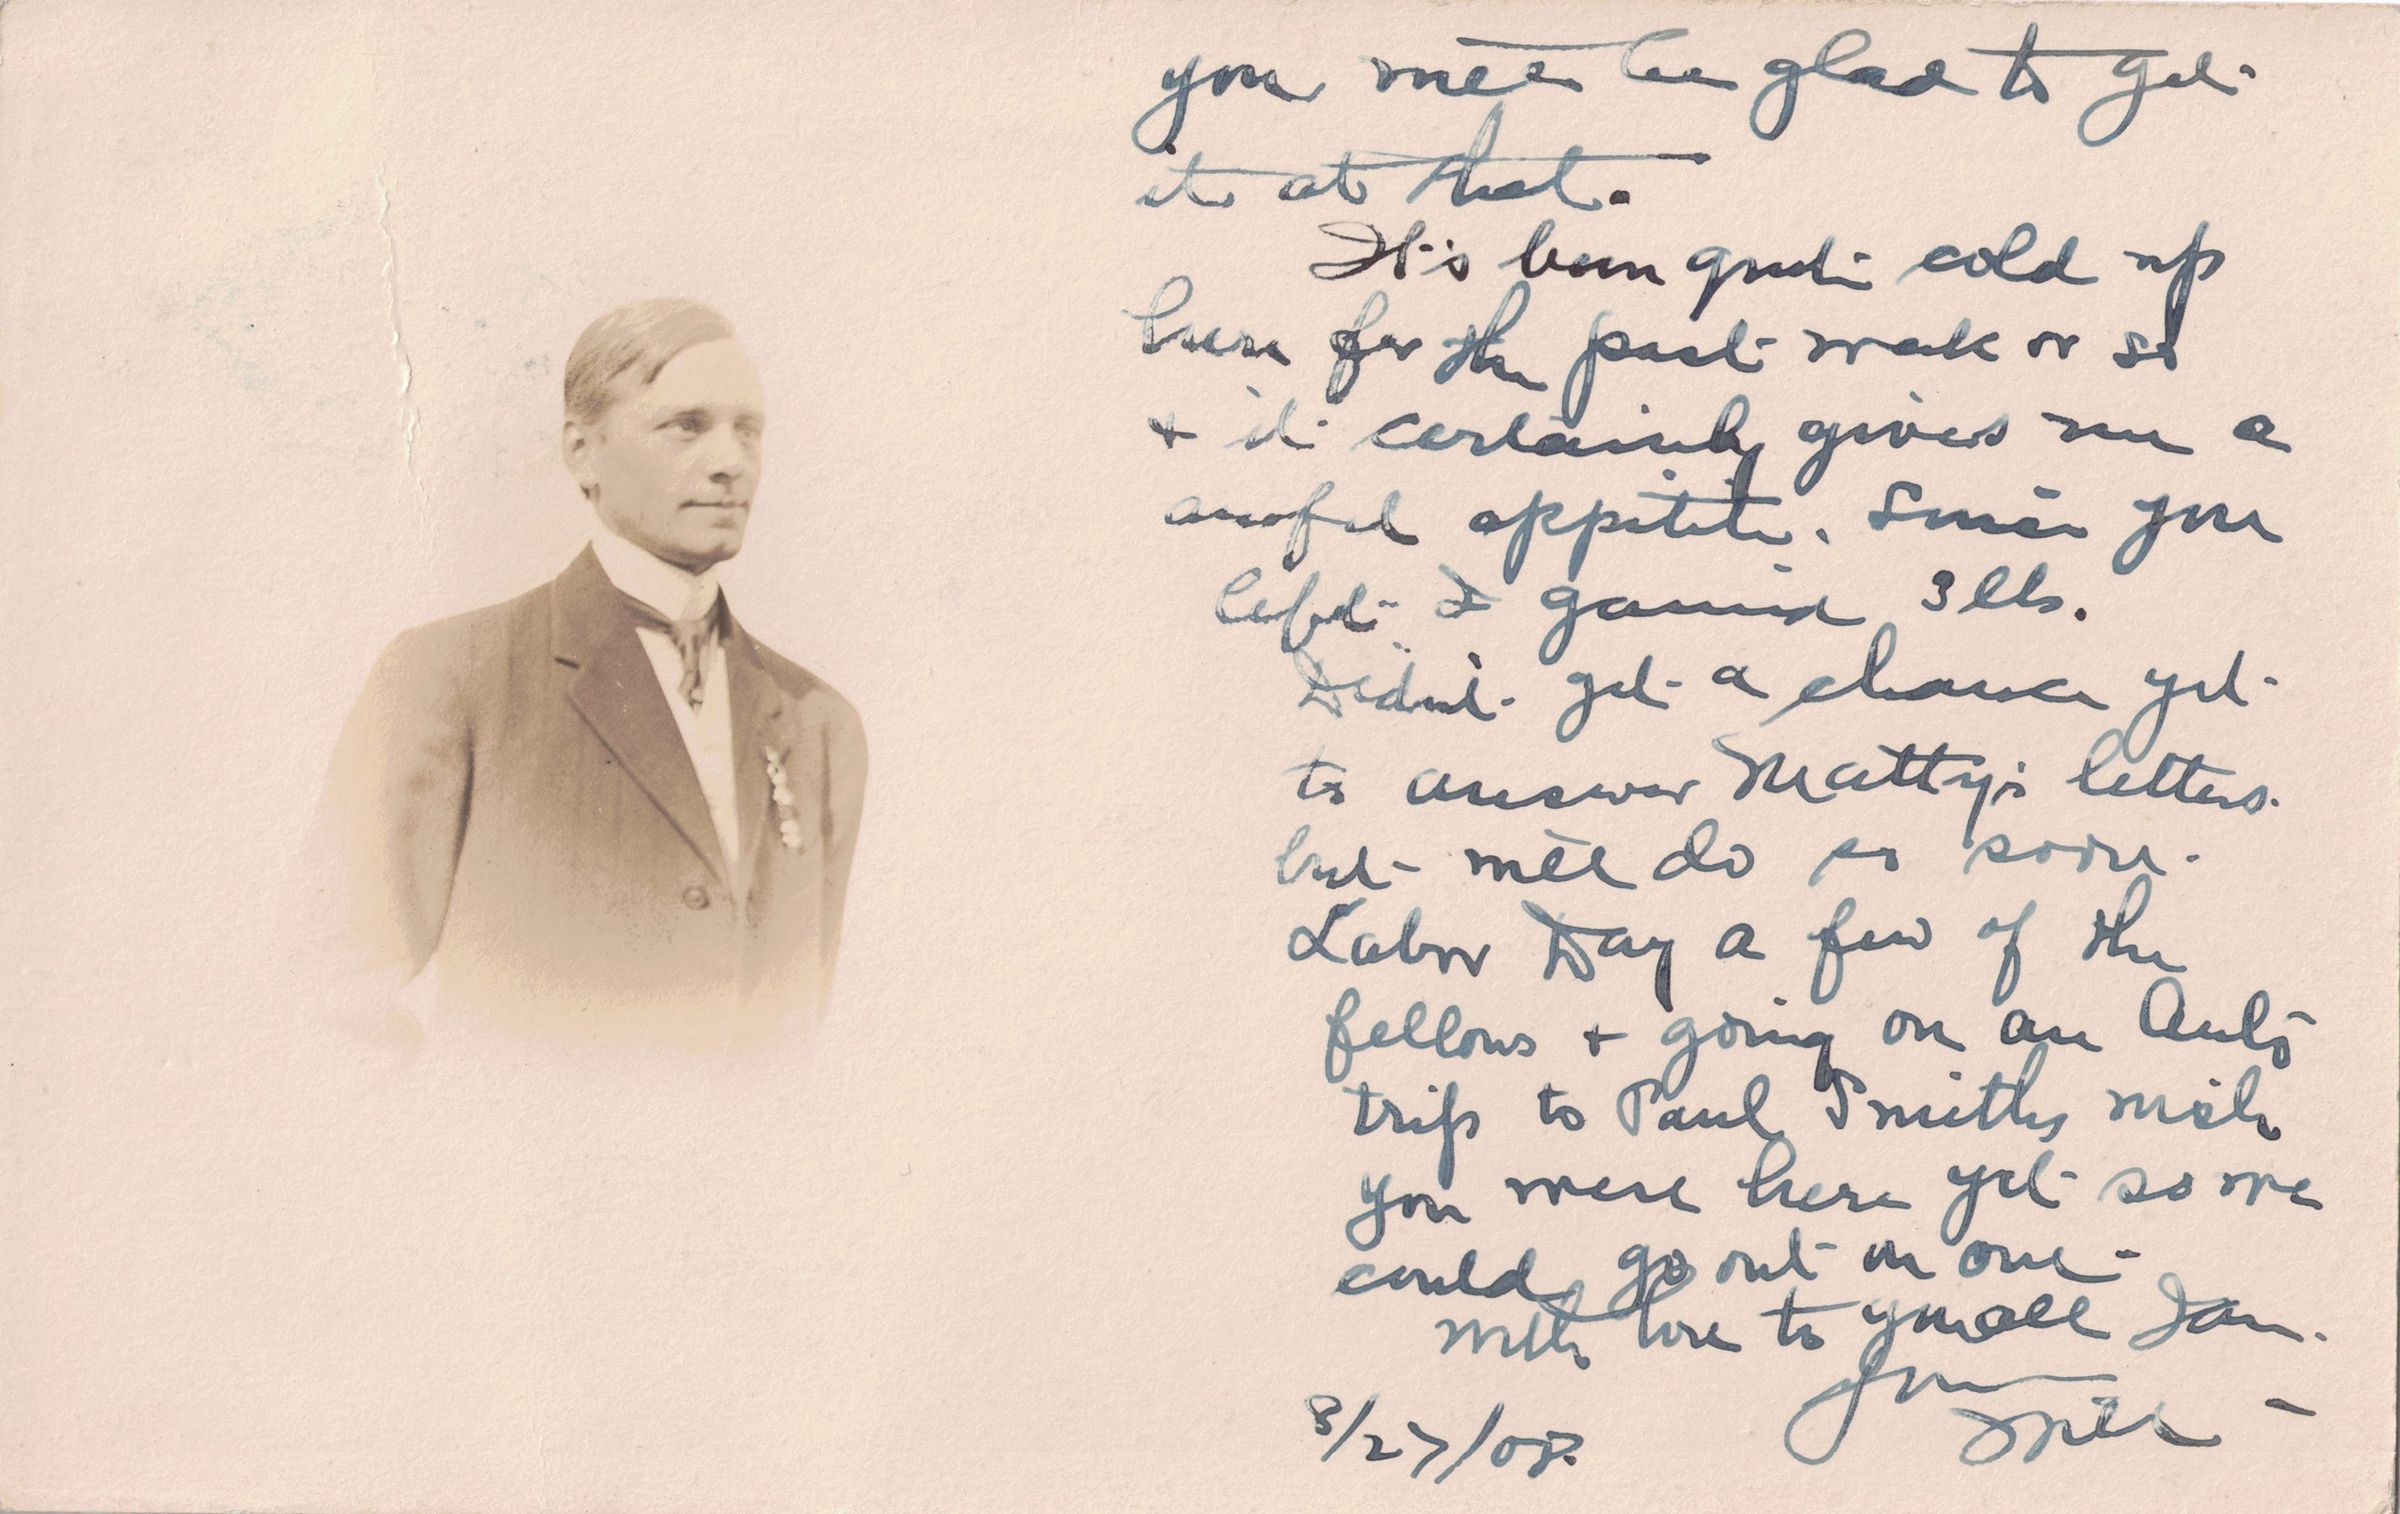 you will be glad to get
it at that.
It's been quite cold up
here for the past week or so
+ it certainly gives me a
awful appetite. Since you
left I gained 3 lbs.
Didn't get a chance yet
to answer Matty's letters.
but will do so soon.
Labor Day a few of the
fellows + going on an Auto
trip to Paul Smiths wish
you were here yet so we
could go out on one.
With love to you all I am.
Your
Will
8/27/08.